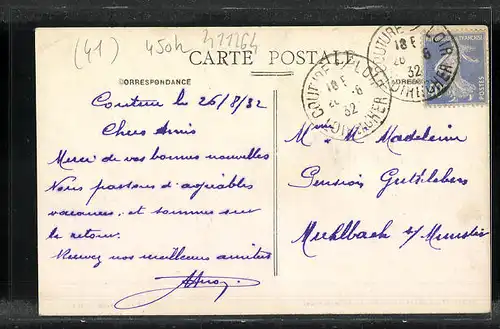 (41) 450h 411264
CARTE POSTALE
CORRESPONDANCE
Couture le 26/8/32
Chers Amis
Merci de vos bonnes nouvelles
Nous passons d'agréables
vacances et sommes sur
le retour.
Recevez nos meilleures amitiés
COUTURE S. LOIR
18 E
26 - 8
32
LOIR ET CHER
COUTURE S. LOIR
18 E
26 - 8
32
LOIR ET CHER
POSTES
Mme M. Madeleine
Pension
Muhlbach s/ Munster